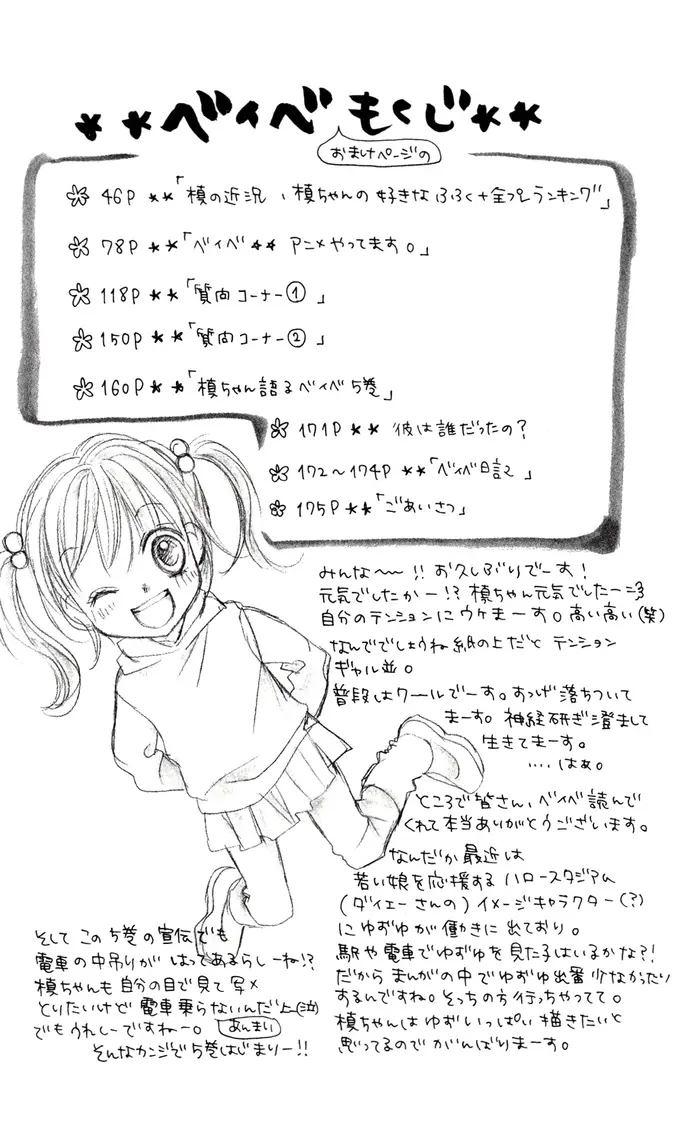 **ベイベもくじ**
おまけページの
46P **「槙の近況、槙ちゃんの好きなふろく+全プレランキング」
78P **「ベイベ** アニメやってます。」
118P **「質問コーナー①」
150P **「質問コーナー②」
160P **「槙ちゃん語るベイベ5巻」
171P ** 彼は誰だったの?
172〜174P **「ベイベ日記」
175P **「ごあいさつ」
みんな〜!! お久しぶりでーす!
元気でしたかー!? 槙ちゃん元気でしたー
自分のテンションにウケまーす。高い高い(笑)
なんででしょうね紙の上だと テンション
ギャル並。
普段はクールでーす。すっげ落ちついて
まーす。神経研ぎ澄まして
生きてまーす。
‥‥はぁ。
ところで皆さん、ベイベ読んで
くれて本当ありがとうございます。
なんだか最近は
若い娘を応援する ハロースタジアム
(ダイエーさんの)イメージキャラクター(?)
にゆずゆが働きに出ており。
駅や電車でゆずゆを見た子はいるかな?!
だからまんがの中でゆずゆ出番少なかったり
するんですね。そっちの方行っちゃってて。
槙ちゃんはゆずいっぱい描きたいと
思ってるのでがんばりまーす。
そして この5巻の宣伝でも
電車の中吊りが はってあるらしーね!?
槙ちゃんも自分の目で見て写メ
とりたいけど 電車乗らないんだよ(泣)
あんまい
でもうれしーですねー。
そんなカンジで5巻はじまりー!!